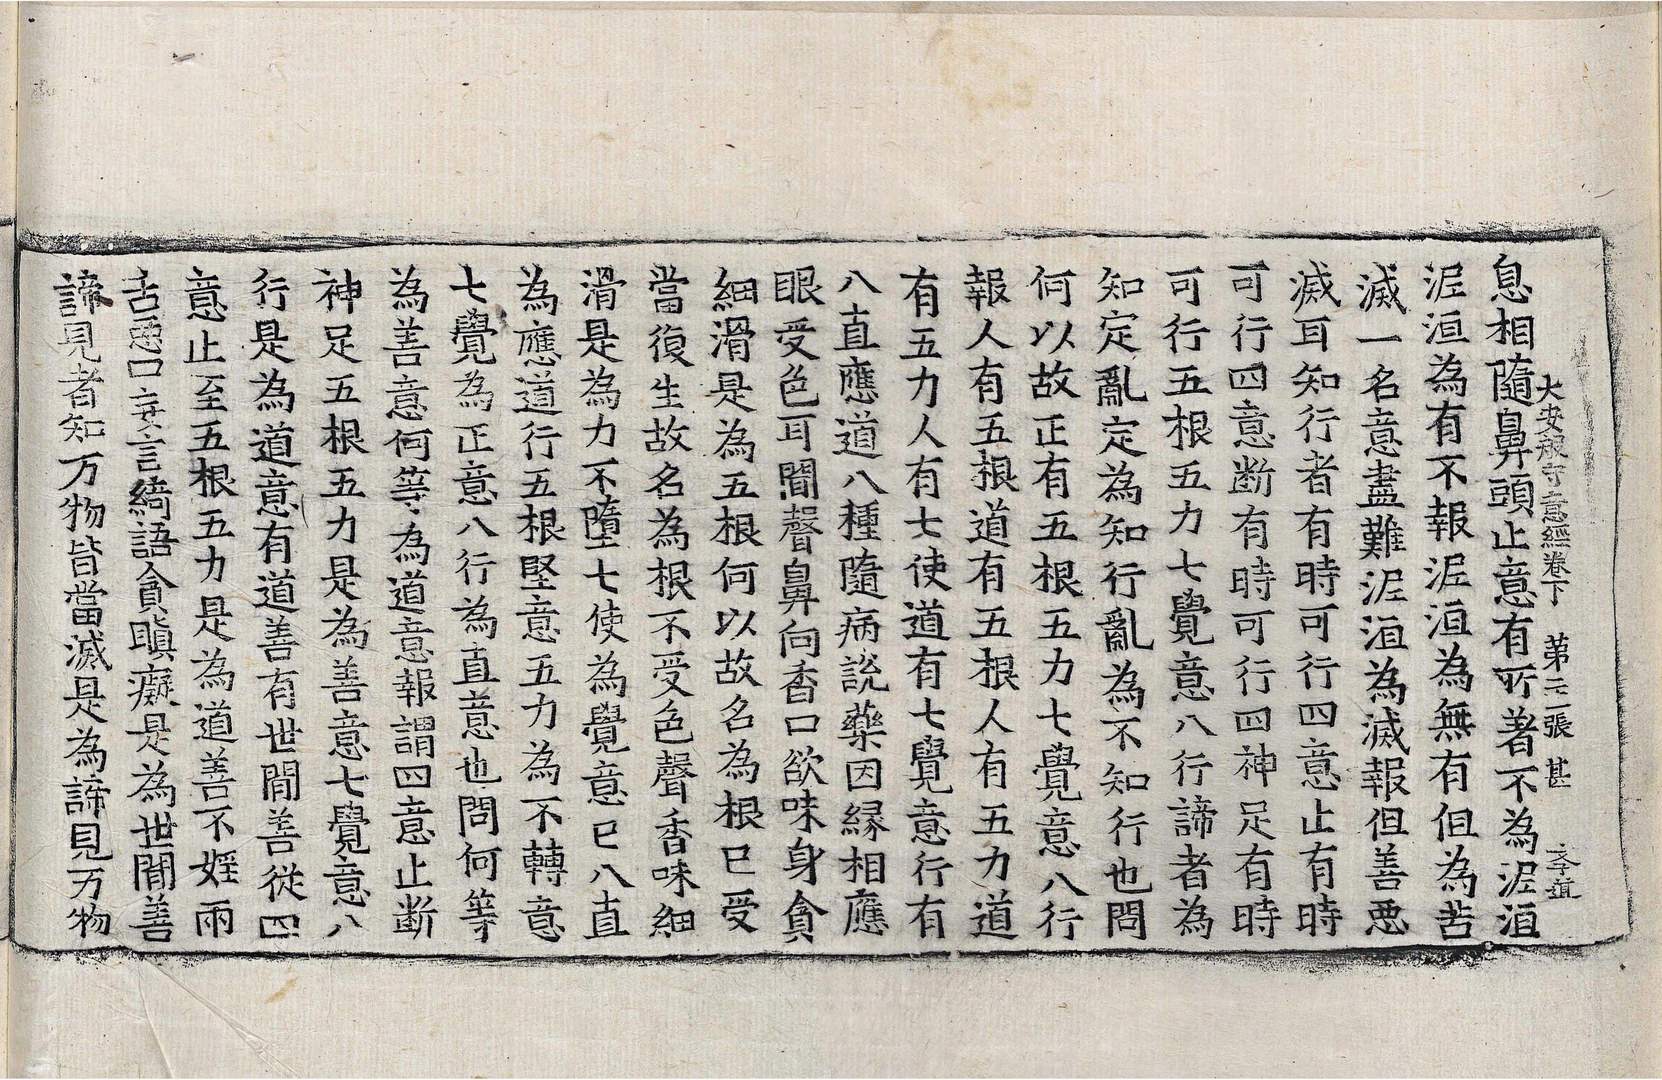 大安般守意經卷下 第二張 甚
息相隨鼻頭止意有所著不為泥洹
泥洹為有不報泥洹為無有但為苦
滅一名意盡難泥洹為滅報但善惡
滅耳知行者有時可行四意止有時
可行四意断有時可行四神足有時
可行五根五力七覺意八行諦者為
知定亂定為知行亂為不知行也問
何以故正有五根五力七覺意八行
報人有五根道有五根人有五力道
有五力人有七使道有七覺意行有
八直應道八種隨病說藥因緣相應
眼受色耳聞聲鼻向香口欲味身貪
細滑是為五根何以故名為根已受
當復生故名為根不受色聲香味細
滑是為力不墮七使為覺意已八直
為應道行五根堅意五力為不轉意
七覺為正意八行為直意也問何等
為善意何等為道意報謂四意止断
神足五根五力是為善意七覺意八
行是為道意有道善有世間善從四
意止至五根五力是為道善不婬兩
舌惡口妄言綺語貪瞋癡是為世間善
諦見者知万物皆當滅是為諦見万物